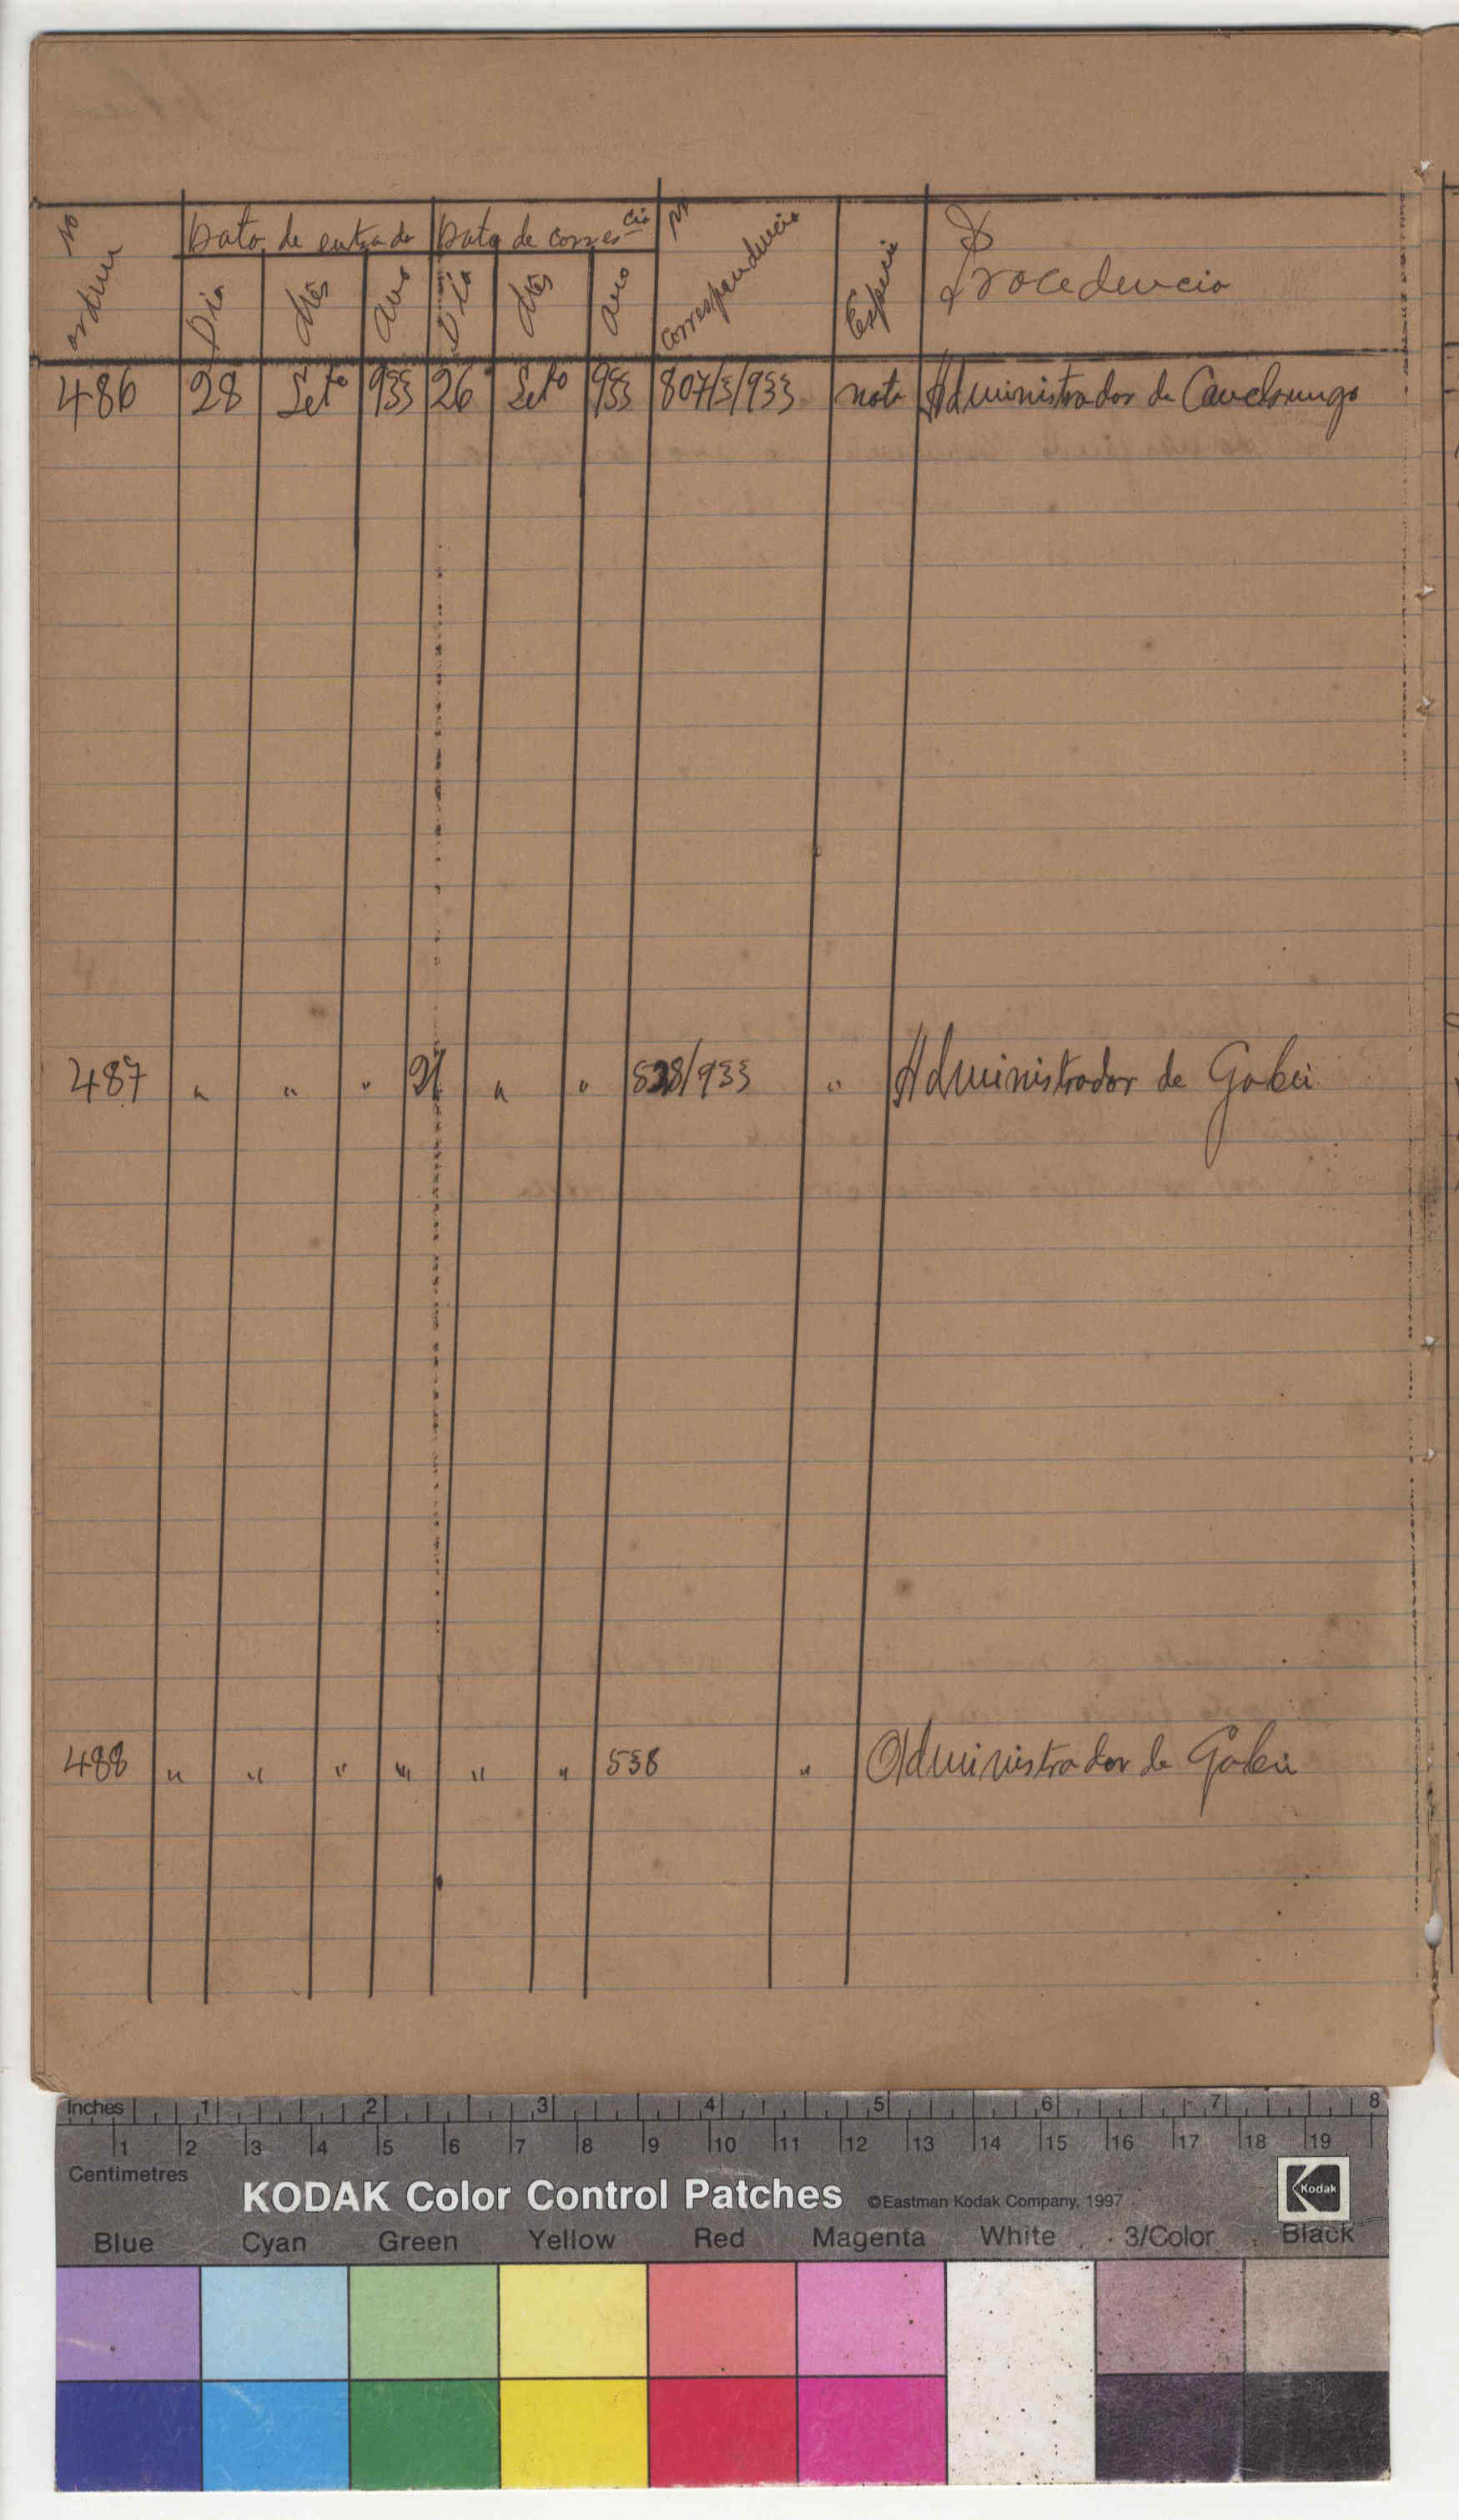 No ordem Data de entrada Data de corres cia No correspondencia Especie Procedencia
Dia Mês Ano Dia Mês Ano
486 28 Set º 933 26 Set º 933 807/3/933 nota Administrador de Canchungo
487 " " " 21 " " /933 " Administrador de Gabú
488 " " " " " " 538 " Administrador de Gabú
Inches 1 2 3 4 5 6 7 8
1 2 3 4 5 6 7 8 9 10 11 12 13 14 15 16 17 18 19
Centimetres
KODAK Color Control Patches ©Eastman Kodak Company, 1997 Kodak
Blue Cyan Green Yellow Red Magenta White 3/Color Black